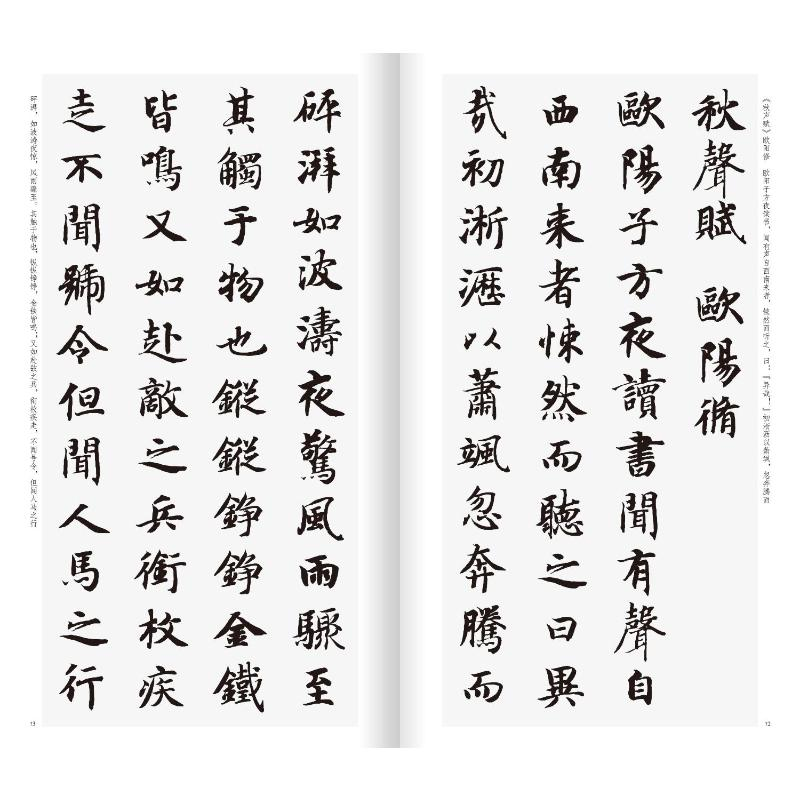 《秋声赋》欧阳修　欧阳子方夜读书，闻有声自西南来者，悚然而听之，曰：「异哉！」初淅沥以萧飒，忽奔腾而
秋聲賦　歐陽脩
歐陽子方夜讀書聞有聲自
西南来者悚然而聽之曰異
哉初淅瀝以蕭颯忽奔騰而
12
砰湃如波濤夜驚風雨驟至
其觸于物也鏦鏦錚錚金鐵
皆鳴又如赴敵之兵銜枚疾
走不聞號令但聞人馬之行
砰湃，如波涛夜惊，风雨骤至。其触于物也，鏦鏦铮铮，金铁皆鸣；又如赴敌之兵，衔枚疾走，不闻号令，但闻人马之行
13